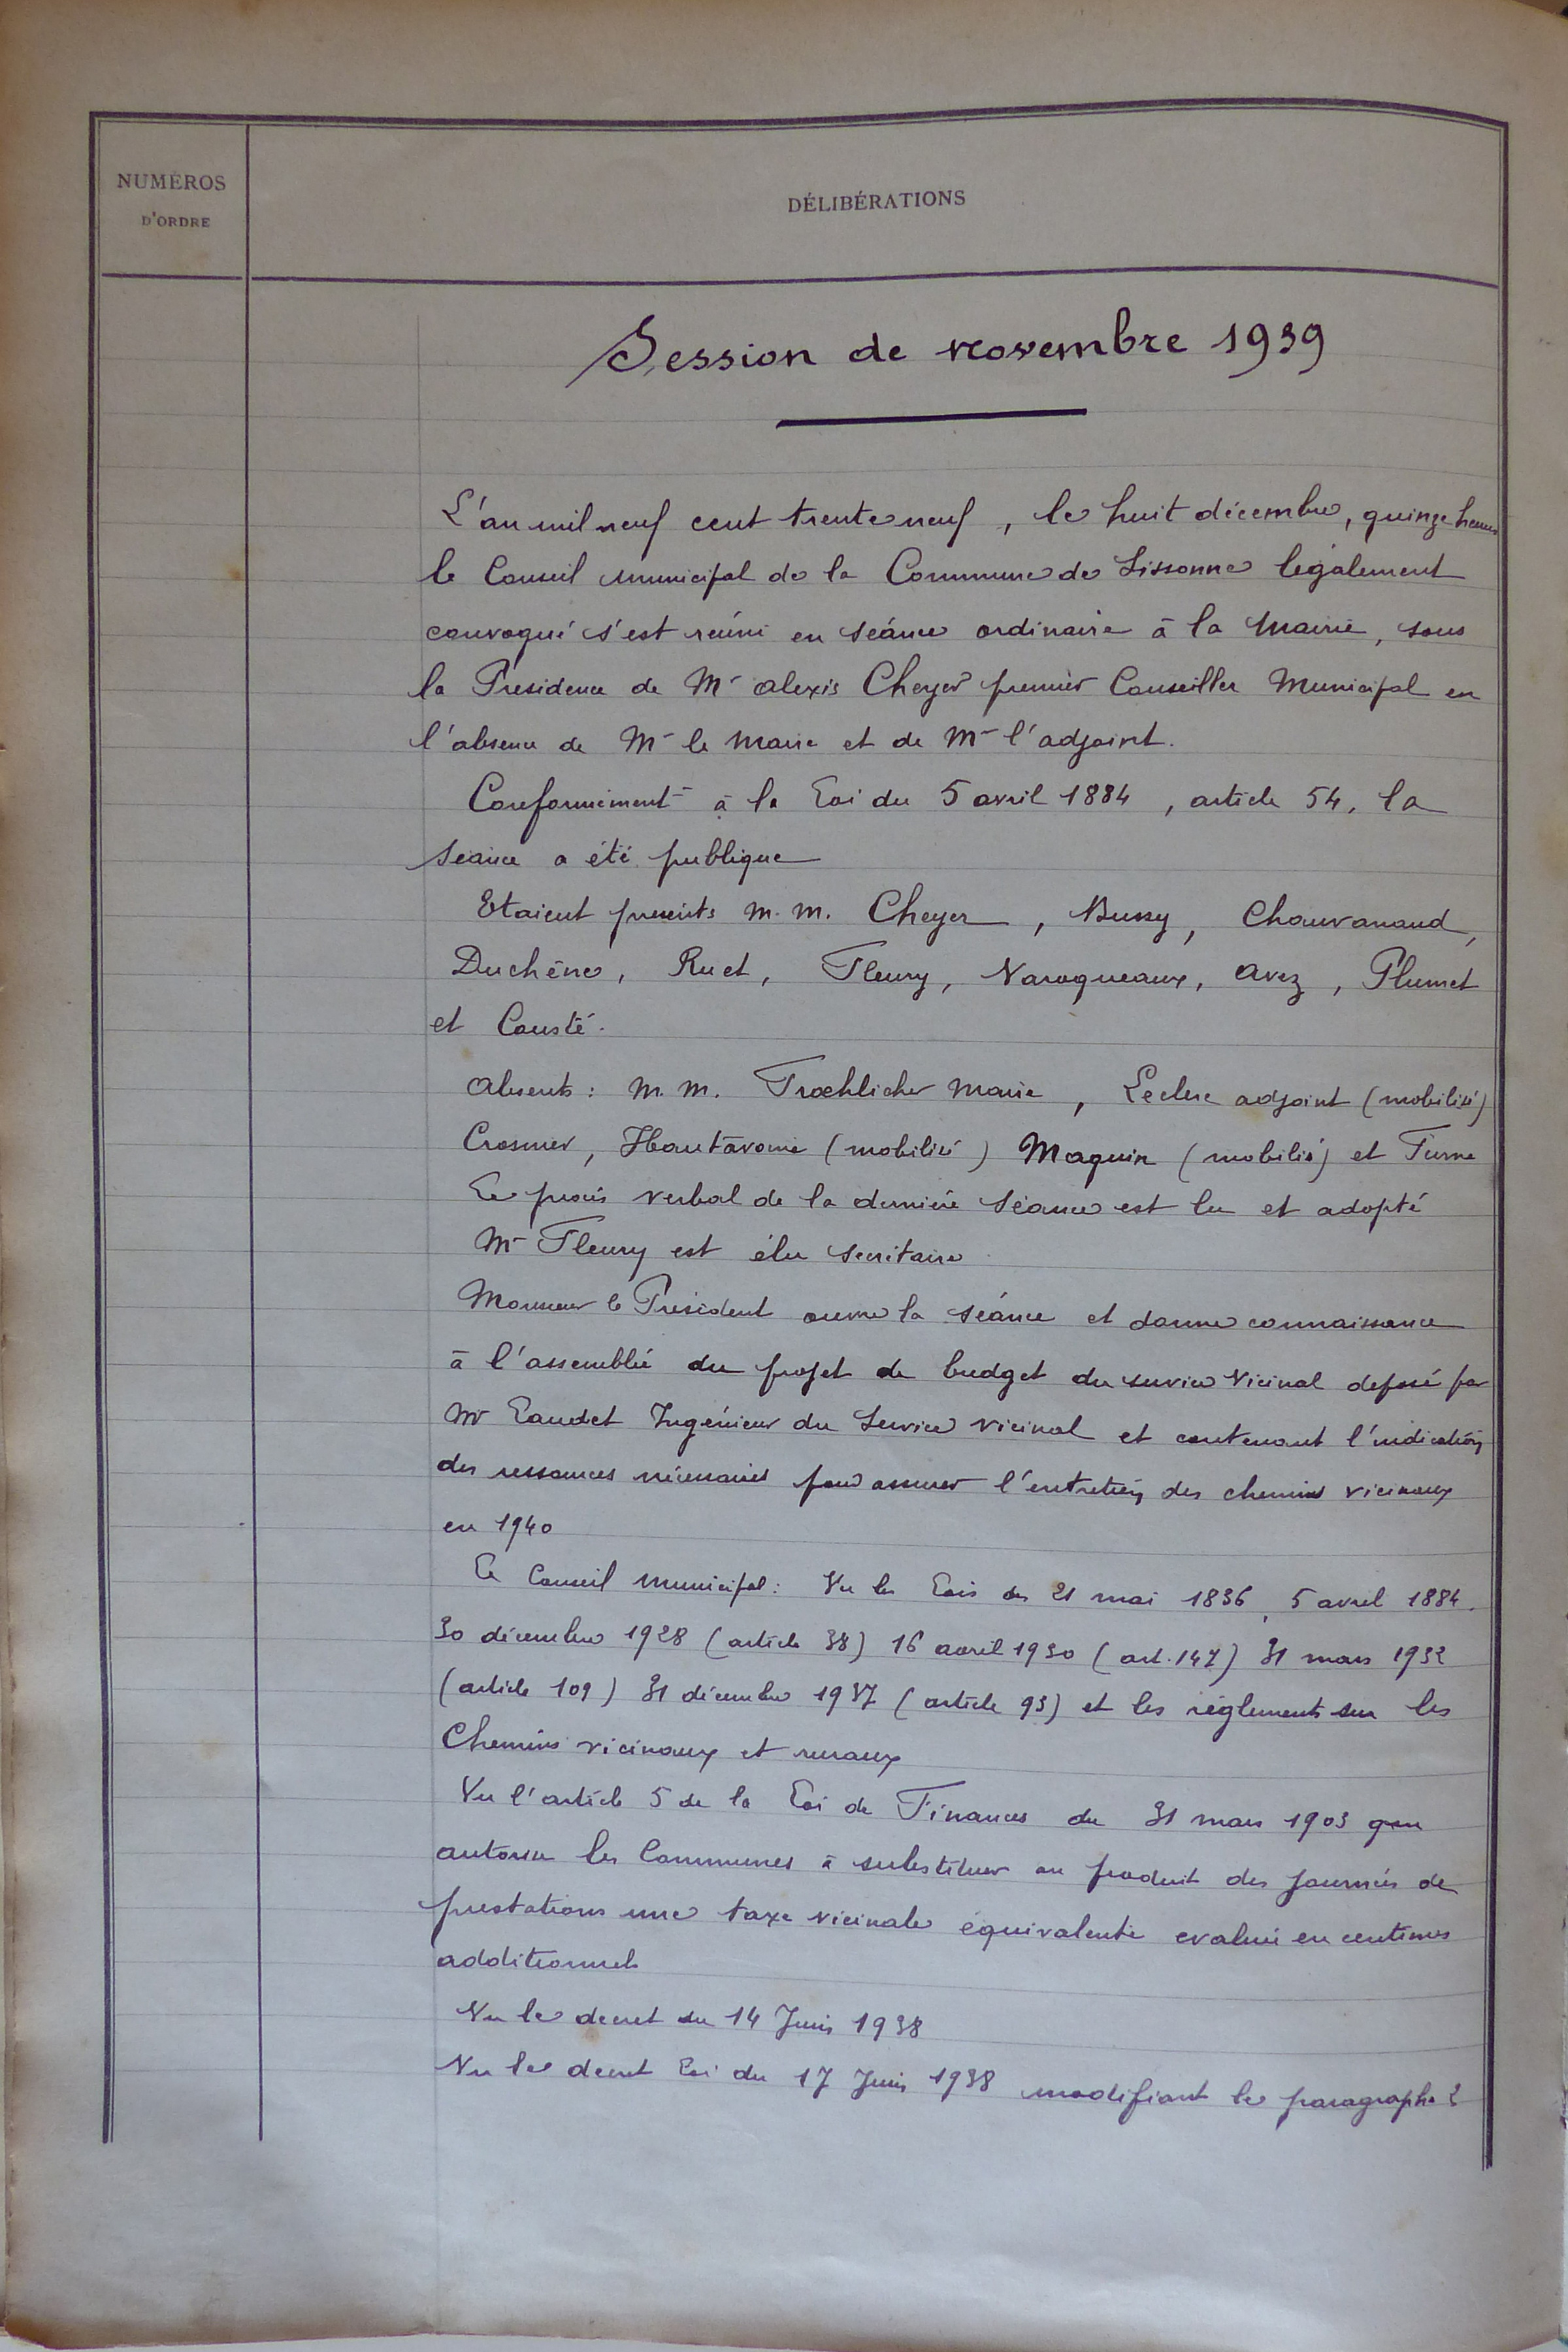 NUMÉROS
D'ORDRE
DÉLIBÉRATIONS
Session de novembre 1939
L'an mil neuf cent trente neuf, le huit décembre, quinze heures
le Conseil Municipal de la Commune de Sissonne légalement
convoqué s'est réuni en séance ordinaire à la Mairie, sous
la Presidence de Mr Alexis Cheyer premier Conseiller Municipal en
l'absence de Mr le Maire et de Mr l'adjoint.
Conformément à la Loi du 5 avril 1884, article 54, la
séance a été publique
Etaient présents M.M. Cheyer, Bussy, Chauvanaud,
Duchêne, Ruet, Fleury, Naroqueaux, Avez, Plumet
et Cousté.
Absents: M.M. Froehlicher Maire, Leclerc adjoint (mobilisé)
Crosnier, Hautavoine (mobilisé) Maquin (mobilisé) et Turne
Le procès verbal de la dernière séance est lu et adopté
Mr Fleury est élu secrétaire
Monsieur le Président ouvre la séance et donne connaissance
à l'assemblée du projet de budget du service vicinal déposé par
Mr Laudet Ingénieur du Service vicinal et contenant l'indication
des ressources nécessaires pour assurer l'entretien des chemins vicinaux
en 1940
Le Conseil Municipal: Vu les Lois des 21 mai 1836, 5 avril 1884,
30 décembre 1928 (article 38) 16 avril 1930 (art. 147) 31 mars 1932
(article 109) 31 décembre 1937 (article 93) et les réglements sur les
Chemins vicinaux et ruraux
Vu l'article 5 de la Loi de Finances du 31 mars 1903 qui
autorise les Communes à substituer au produit des journées de
prestations une taxe vicinale équivalente evaluée en centimes
additionnels
Vu le decret du 14 Juin 1938
Vu le decret Loi du 17 Juin 1938 modifiant le paragraphe 2